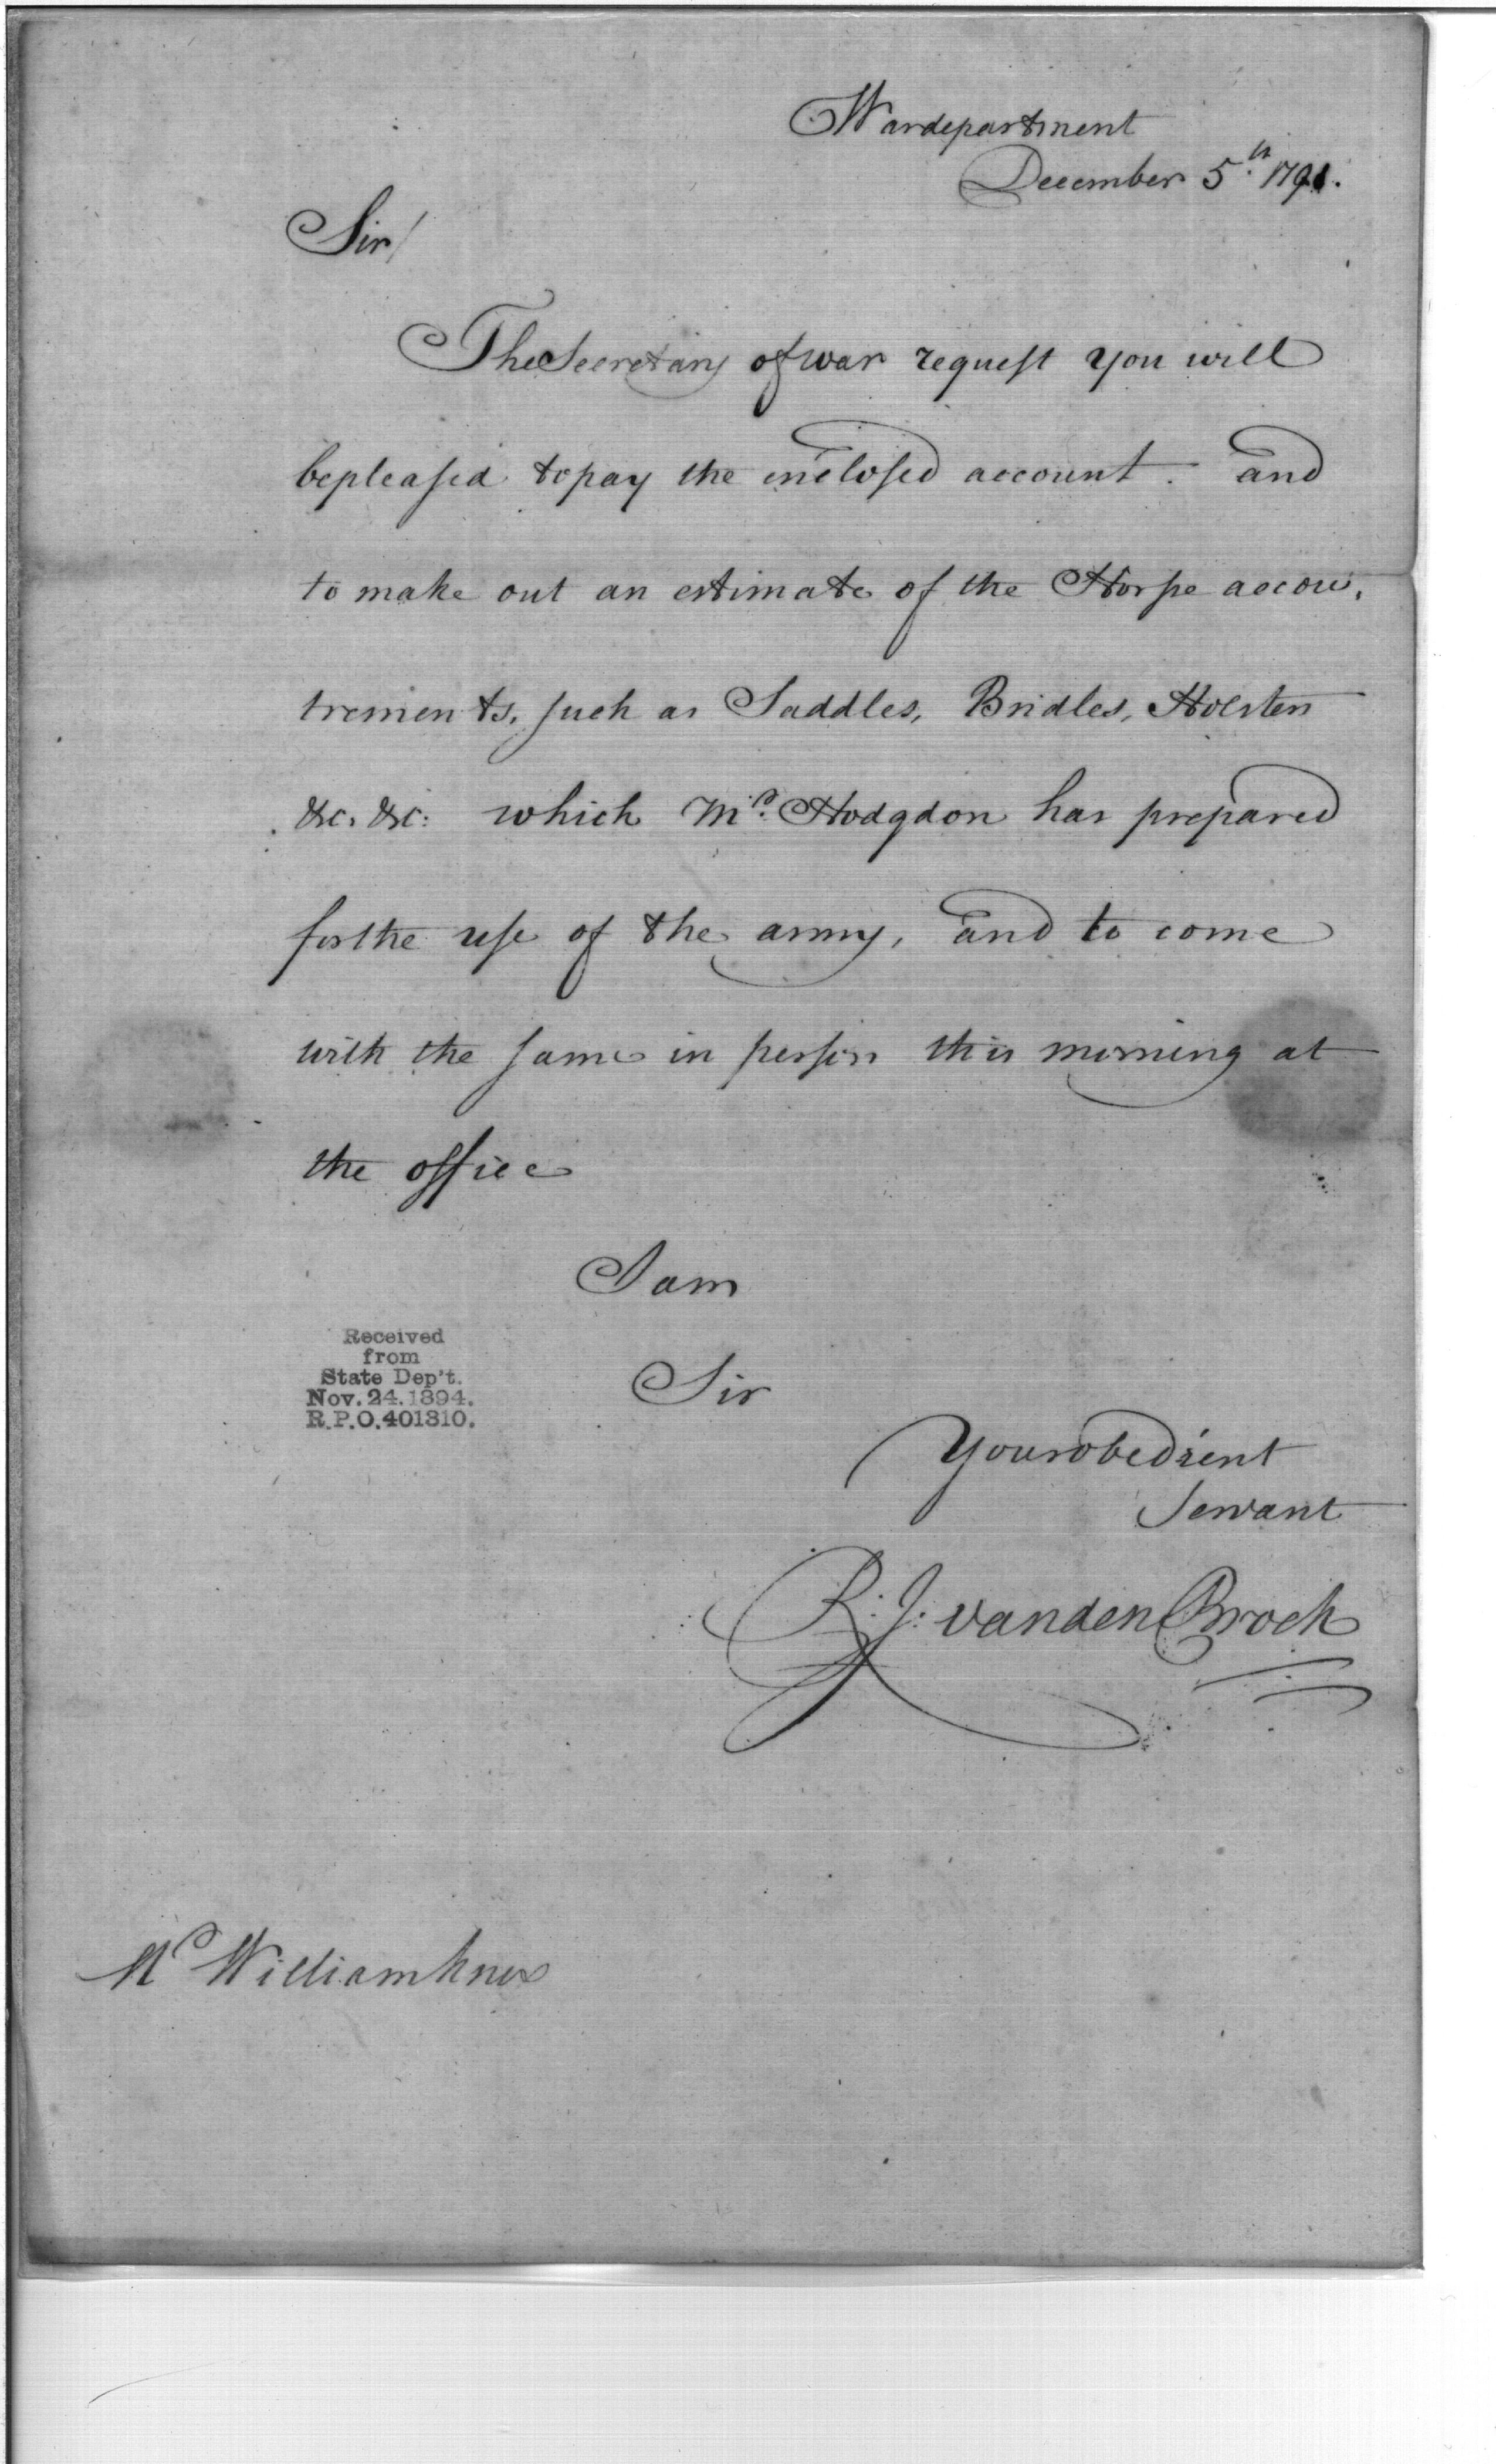 Wardepartment
December 5.th 1791.
Sir/
The Secretary of war request you will
be pleased to pay the enclosed account. and
to make out an estimate of the Horse accou,
trements, such as Saddles, Bridles, Holsters
&c. &c: which Mr. Hodgdon has prepared
for the use of the army, and to come
with the same in person this morning at
the office
I am
Sir
Your obedient
Servant
R: J: vanden Broek
Received
from
State Dep't.
Nov. 24. 1894.
R.P.O. 401310.
Mr William Knox